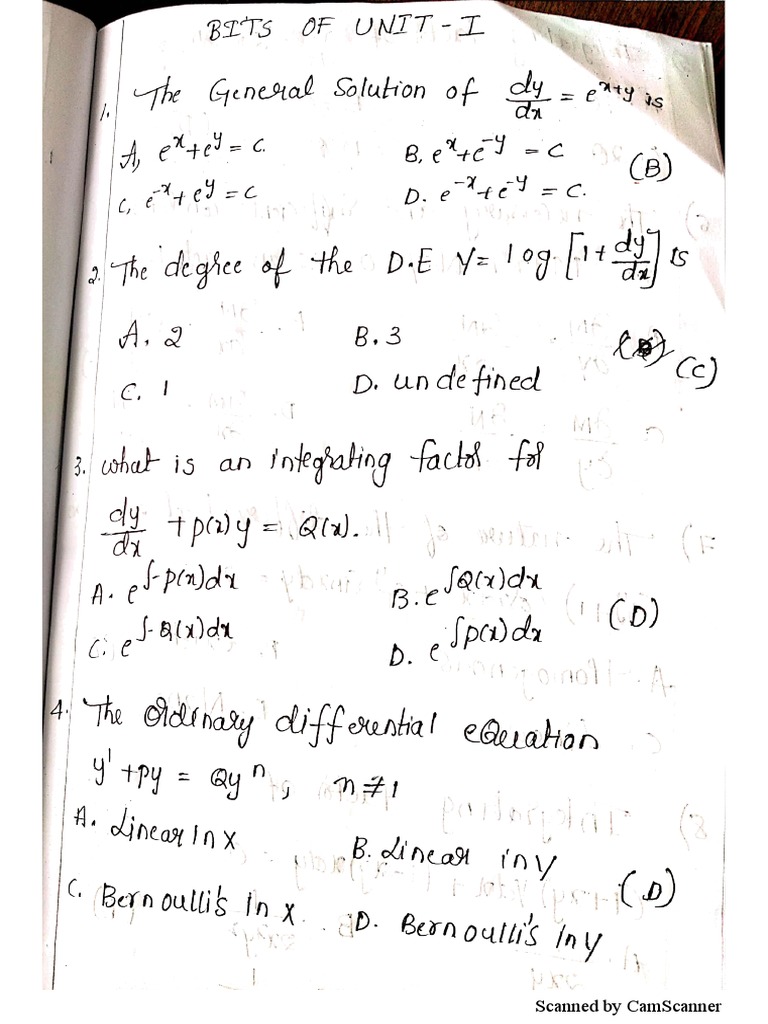 BITS OF UNIT - I
1. The General Solution of dy/dx = e^x+y is
A, e^x+e^y = c. B, e^x+e^-y = c (B)
C, e^-x+e^y = c D. e^-x+e^-y = c.
2. The degree of the D.E Y= log [1+dy/dx] is
A. 2 B. 3
C. 1 D. undefined (C)
3. what is an integrating factor for
dy/dx + p(x)y = Q(x).
A. e^∫-p(x)dx B. e^∫Q(x)dx (D)
C. e^∫-Q(x)dx D. e^∫p(x)dx
4. The Ordinary differential equation
y' + py = Qy^n, n≠1
A. Linear in X B. Linear in Y
C. Bernoulli's in X D. Bernoulli's in Y (D)
Scanned by CamScanner